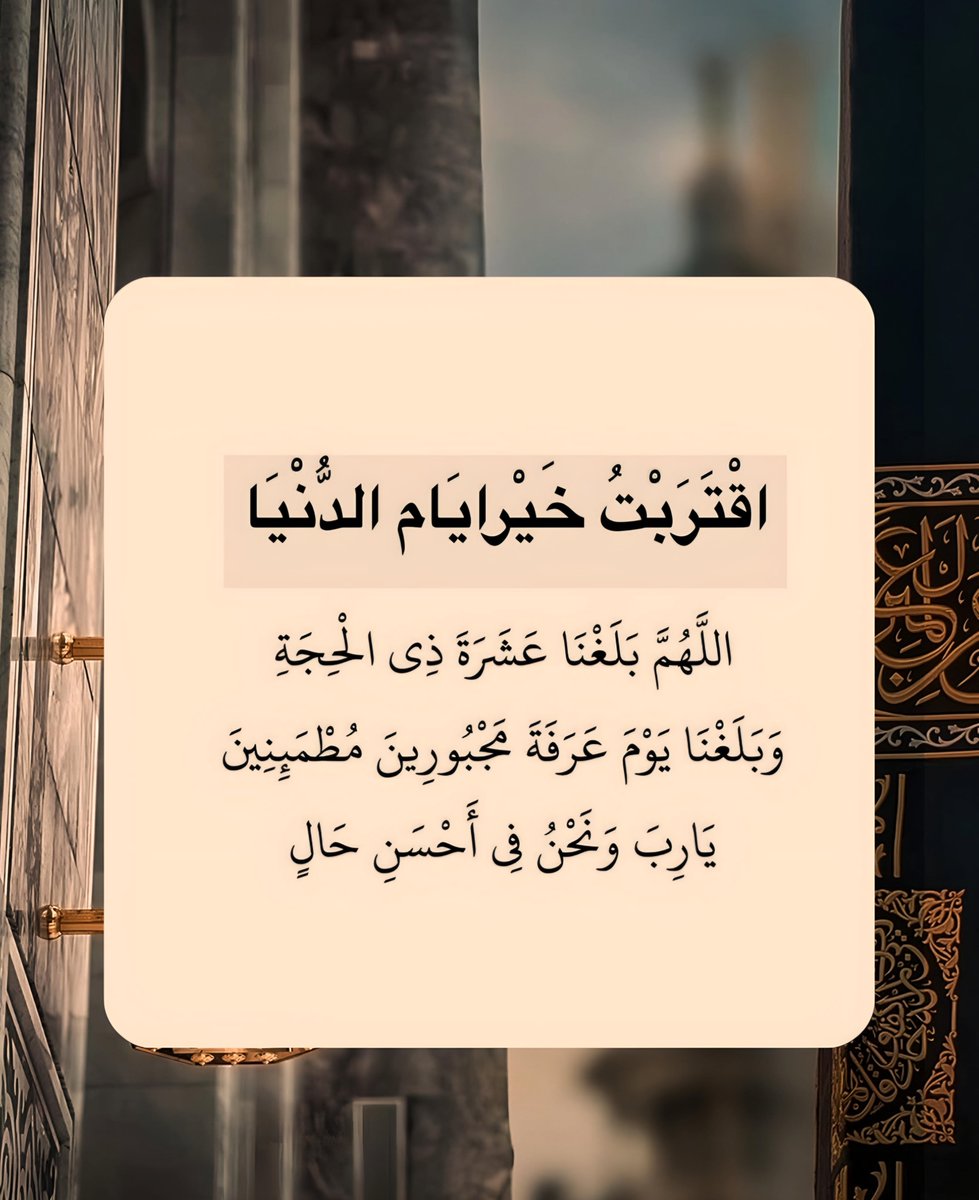 اقْتَرَبْتُ خَيْرايَام الدُّنْيَا
اللَّهُمَّ بَلَغْنَا عَشَرَةَ ذِى الْحِجَةِ
وَبَلَغْنَا يَوْمَ عَرَفَةَ مَجْبُورِينَ مُطْمَئِنِينَ
يَارِبَ وَنَحْنُ فِى أَحْسَنِ حَالٍ